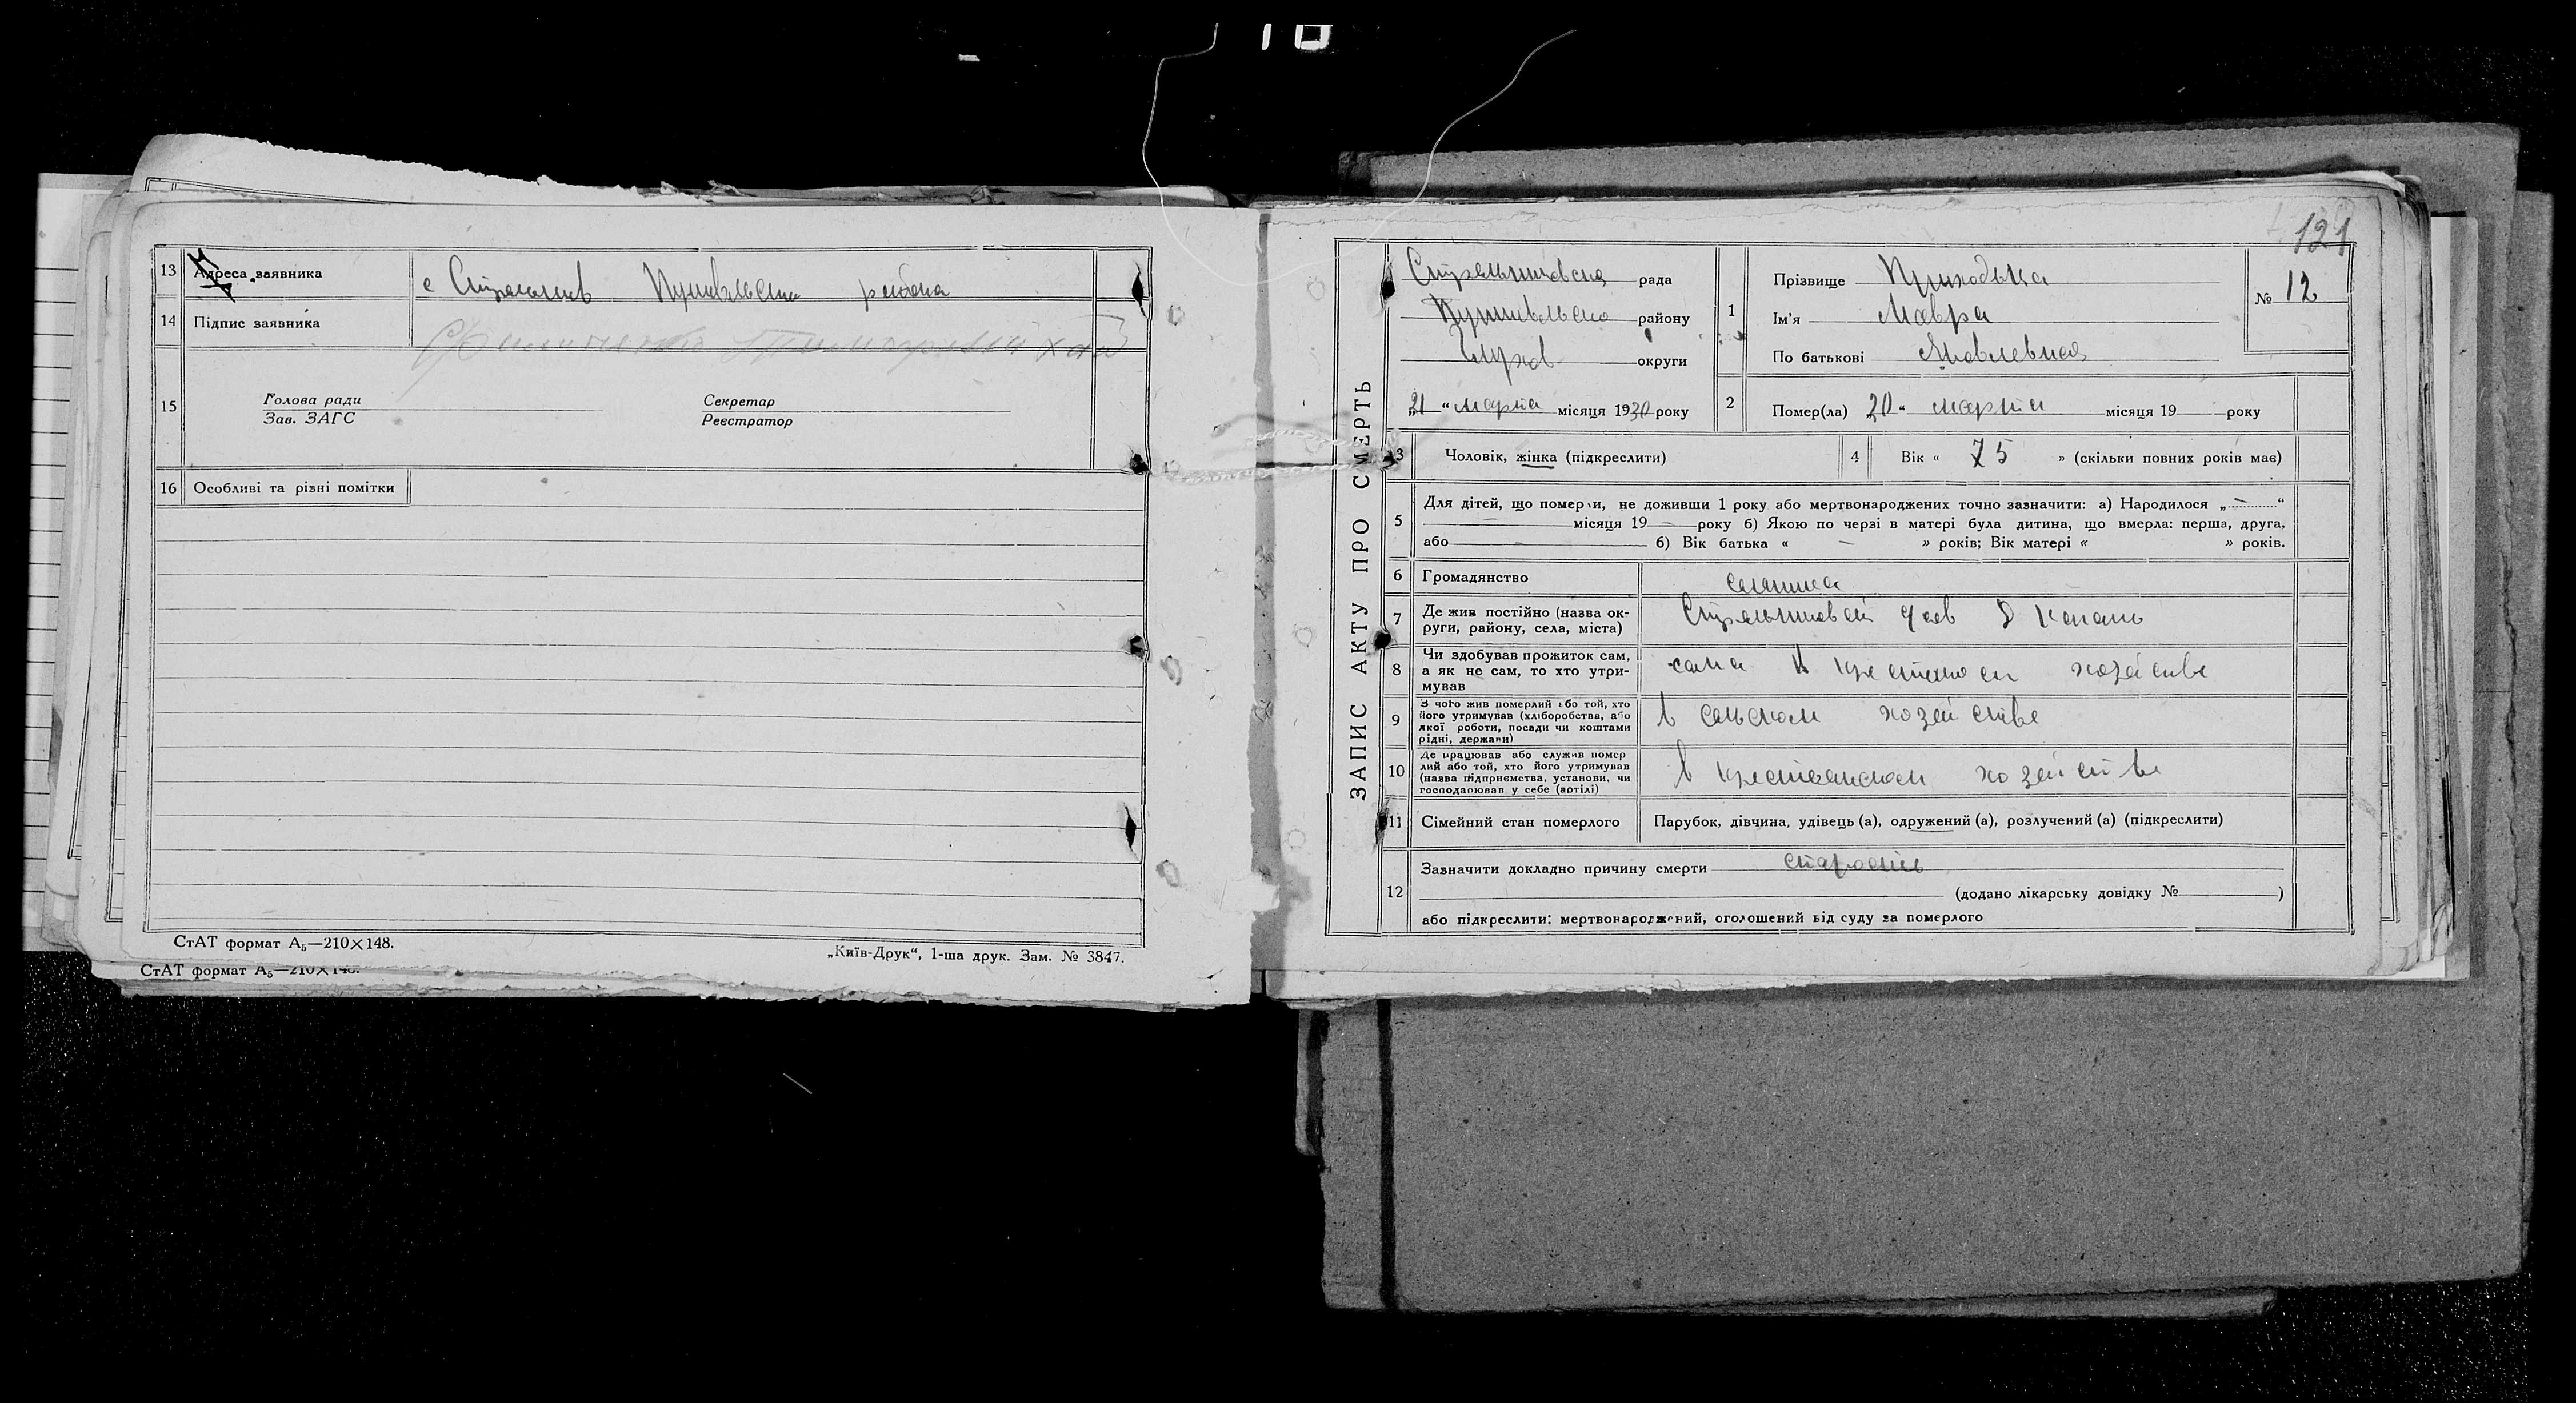 13 Адреса заявника с Стрельники Путивльского района
14 Підпис заявника
15 Голова ради Секретар
Зав. ЗАГС Реєстратор
16 Особливі та різні помітки
СтАТ формат А₅—210×148.
„Київ-Друк“, 1-ша друк. Зам. № 3847.
СтАТ формат А₅—210×148.
121
ЗАПИС АКТУ ПРО СМЕРТЬ
рада
району
округи
21 “ марта місяця 1930 року
№ 12
1 Прізвище Приходька
Ім'я Мавра
По батькові Яковлевна
2 Помер(ла) 20 “ марта місяця 19 року
3 Чоловік, жінка (підкреслити)
4 Вік « 75 » (скільки повних років має)
5 Для дітей, що померли, не доживши 1 року або мертвонароджених точно зазначити: а) Народилося „ — “
місяця 19 року б) Якою по черзі в матері була дитина, що вмерла: перша, друга,
або б) Вік батька « — » років; Вік матері « » років.
6 Громадянство
7 Де жив постійно (назва округи, району, села, міста)
8 Чи здобував прожиток сам,
а як не сам, то хто утримував
сама в хозяйстве
9 З чого жив померлий або той, хто
його утримував (хліборобства, або
якої роботи, посади чи коштами
рідні, держави)
в сельском хозяйстве
10 Де працював або служив померлий або той, хто його утримував
(назва підприємства, установи, чи
господарював у себе (артілі)
в крестьянском хозяйстве
11 Сімейний стан померлого Парубок, дівчина, удівець (а), одружений (а), розлучений (а) (підкреслити)
12 Зазначити докладно причину смерти старость
(додано лікарську довідку № )
або підкреслити: мертвонароджений, оголошений від суду за померлого